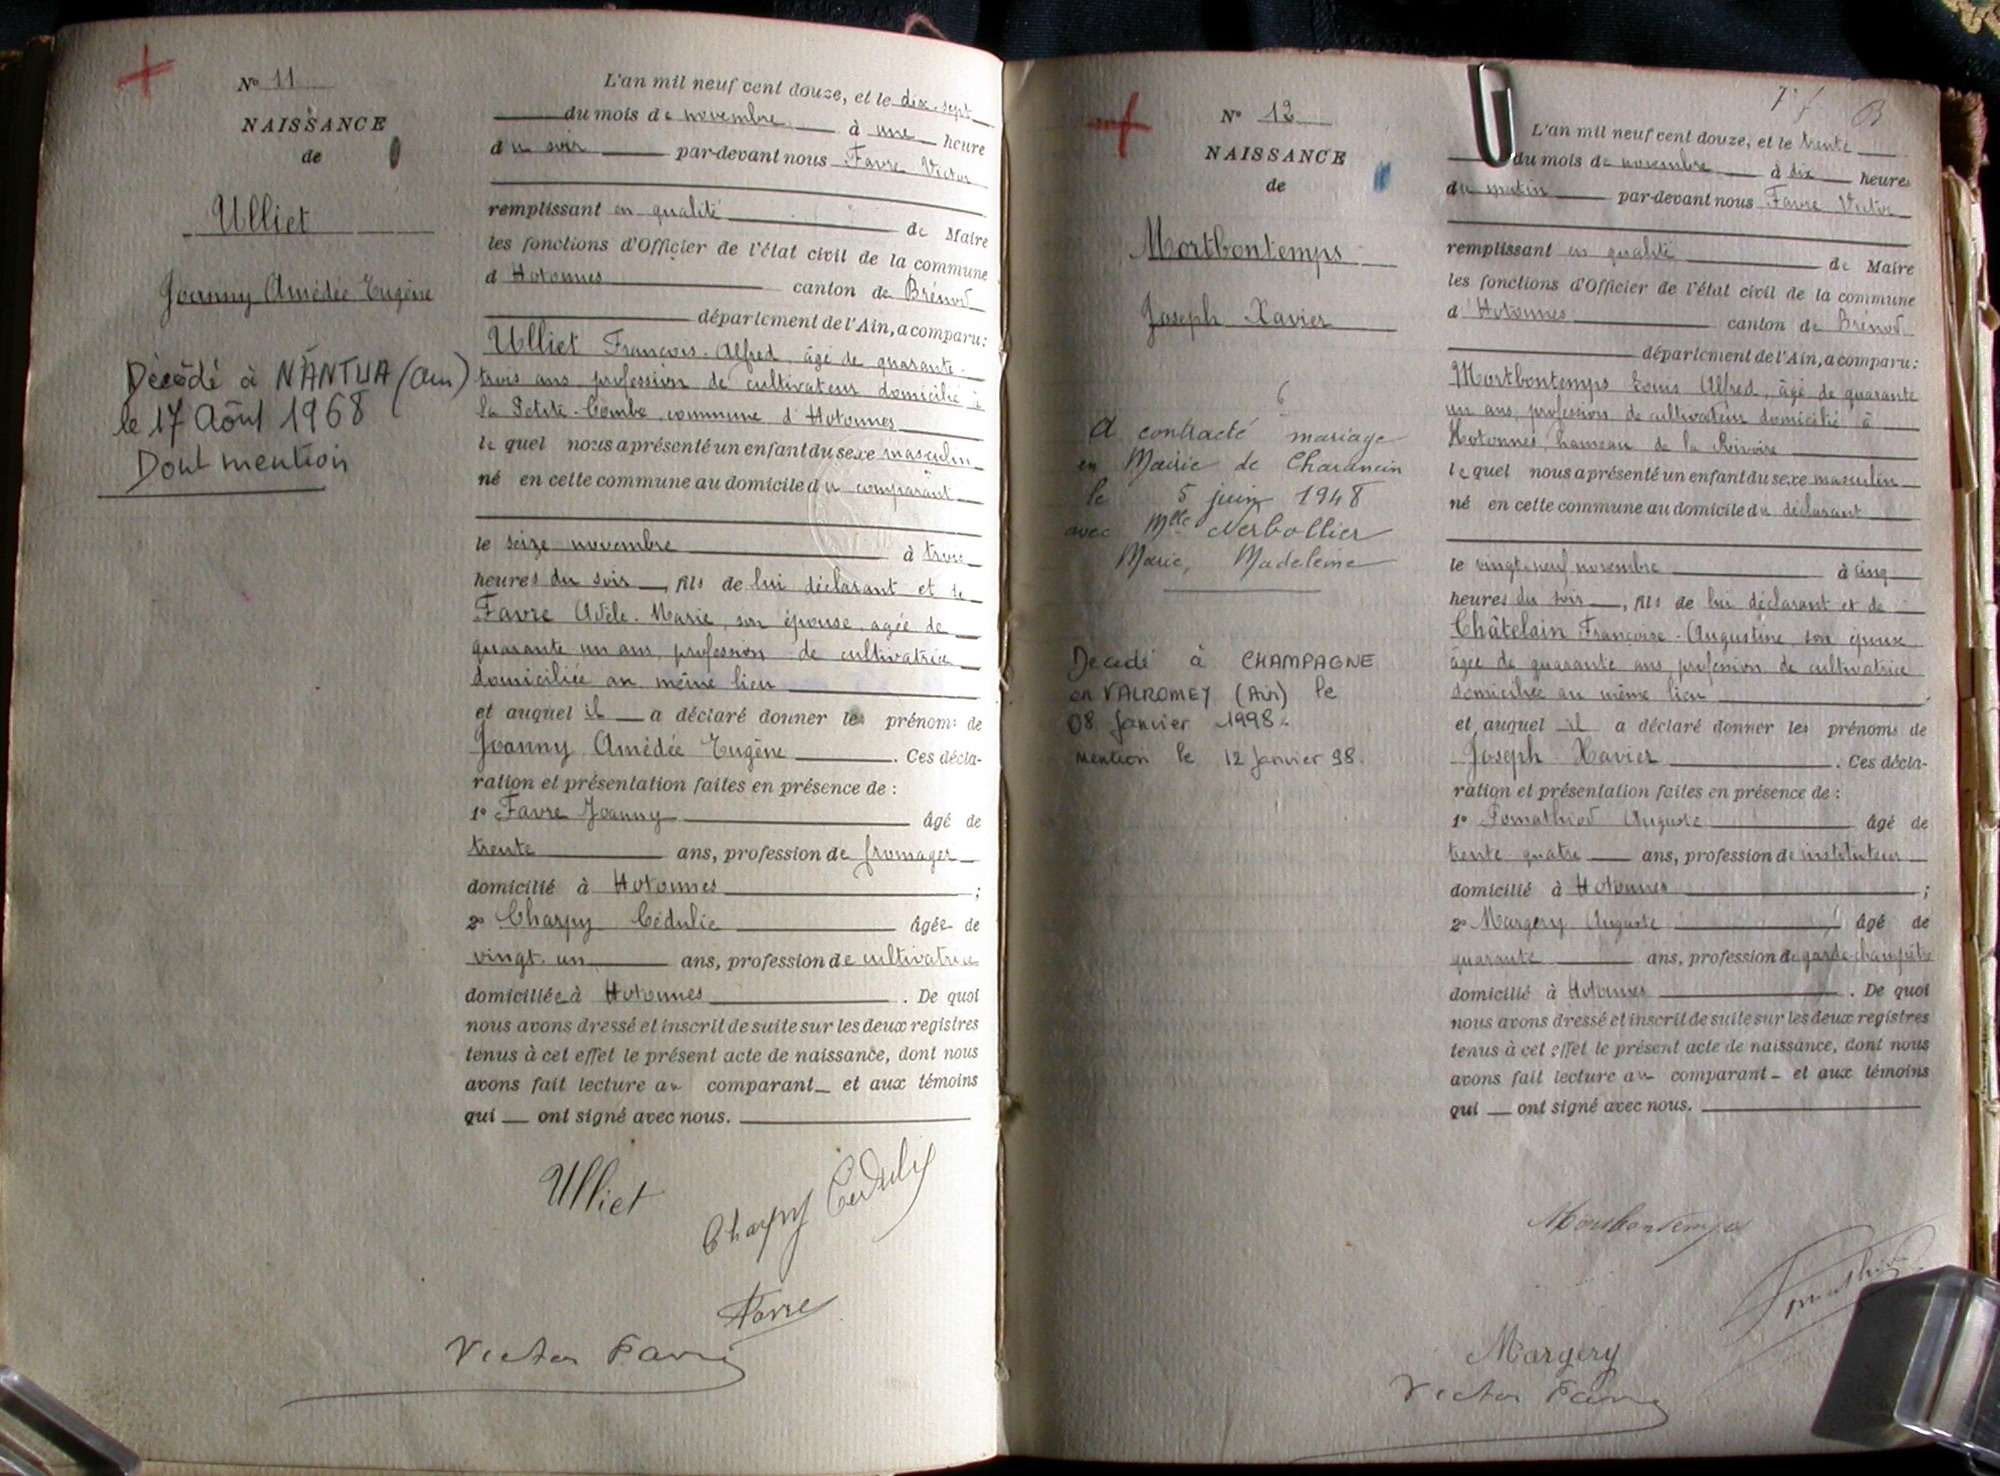 N° 11
NAISSANCE
de
Ulliet
Joanny Amédée Eugène
Décédé à NANTUA (Ain)
le 17 Août 1968
Dont mention
L'an mil neuf cent douze, et le dix-sept
du mois de novembre à une heure
du soir par-devant nous Favre Victor
remplissant en qualité de Maire
les fonctions d'Officier de l'état civil de la commune
d Hotonnes canton de Brénod
département de l'Ain, a comparu:
Ulliet François-Alfred, âgé de quarante-
trois ans profession de cultivateur domicilié à
la Petite-Combe commune d'Hotonnes
lequel nous a présenté un enfant du sexe masculin
né en cette commune au domicile du comparant
le seize novembre à trois
heures du soir, fils de lui déclarant et de
Favre Adèle-Marie, son épouse, agée de
quarante un ans, profession de cultivatrice
domiciliée au même lieu
et auquel il a déclaré donner les prénoms de
Joanny Amédée Eugène. Ces décla-
ration et présentation faites en présence de:
1° Favre Joanny âgé de
trente ans, profession de fromager
domicilié à Hotonnes;
2° Charpy Cédulie âgée de
vingt-un ans, profession de cultivatrice
domiciliée à Hotonnes. De quoi
nous avons dressé et inscrit de suite sur les deux registres
tenus à cet effet le présent acte de naissance, dont nous
avons fait lecture au comparant et aux témoins
qui ont signé avec nous.
Ulliet
Charpy Cédulie
Favre
Victor Favre
N° 12
NAISSANCE
de
Mortbontemps
Joseph Xavier
6
A contracté mariage
en Mairie de Charancin
le 5 juin 1948
avec Mlle Nerbollier
Marie, Madeleine
Décédé à CHAMPAGNE
en VALROMEY (Ain) le
08 Janvier 1998.
mention le 12 Janvier 98.
L'an mil neuf cent douze, et le trente
du mois de novembre à dix heures
du matin par-devant nous Favre Victor
remplissant en qualité de Maire
les fonctions d'Officier de l'état civil de la commune
d'Hotonnes canton de Brénod
département de l'Ain, a comparu:
Mortbontemps Louis Alfred, âgé de quarante
un ans, profession de cultivateur domicilié à
Hotonnes, hameau de la Rivoire
lequel nous a présenté un enfant du sexe masculin
né en cette commune au domicile du déclarant
le vingt-neuf novembre à cinq
heures du soir, fils de lui déclarant et de
Châtelain Françoise-Augustine, son épouse
âgée de quarante ans profession de cultivatrice
domiciliée au même lieu
et auquel il a déclaré donner les prénoms de
Joseph Xavier. Ces décla-
ration et présentation faites en présence de:
1° Pomathiod Auguste âgé de
trente quatre ans, profession de instituteur
domicilié à Hotonnes;
2° Margery Auguste âgé de
quarante ans, profession de garde-champêtre
domicilié à Hotonnes. De quoi
nous avons dressé et inscrit de suite sur les deux registres
tenus à cet effet le présent acte de naissance, dont nous
avons fait lecture au comparant et aux témoins
qui ont signé avec nous.
Mortbontemps
Pomathiod
Margery
Victor Favre